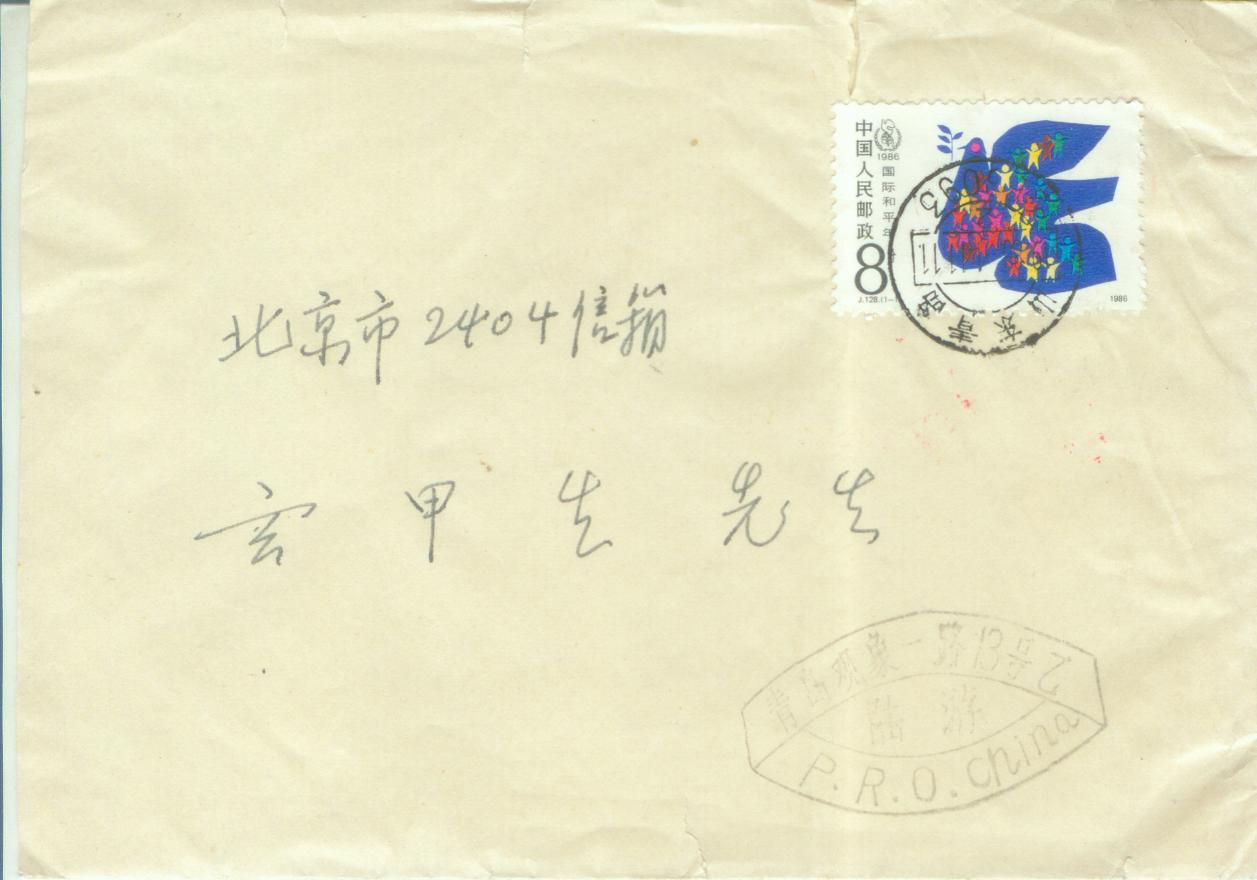 中国人民邮政
1986
国际和平年
8
J.128.(1-
1986
山东青岛
北京市2404信箱
宫甲生 先生
青岛观象一路13号乙
陆游
P.R.O.China